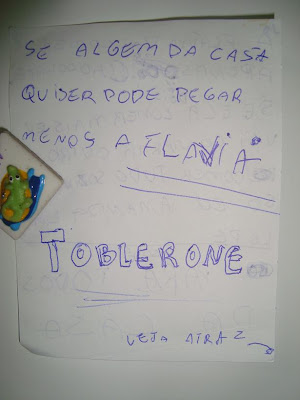 SE ALGEM DA CASA
QUISER PODE PEGAR
MENOS A FLAVIA
TOBLERONE
VEJA ATRAZ